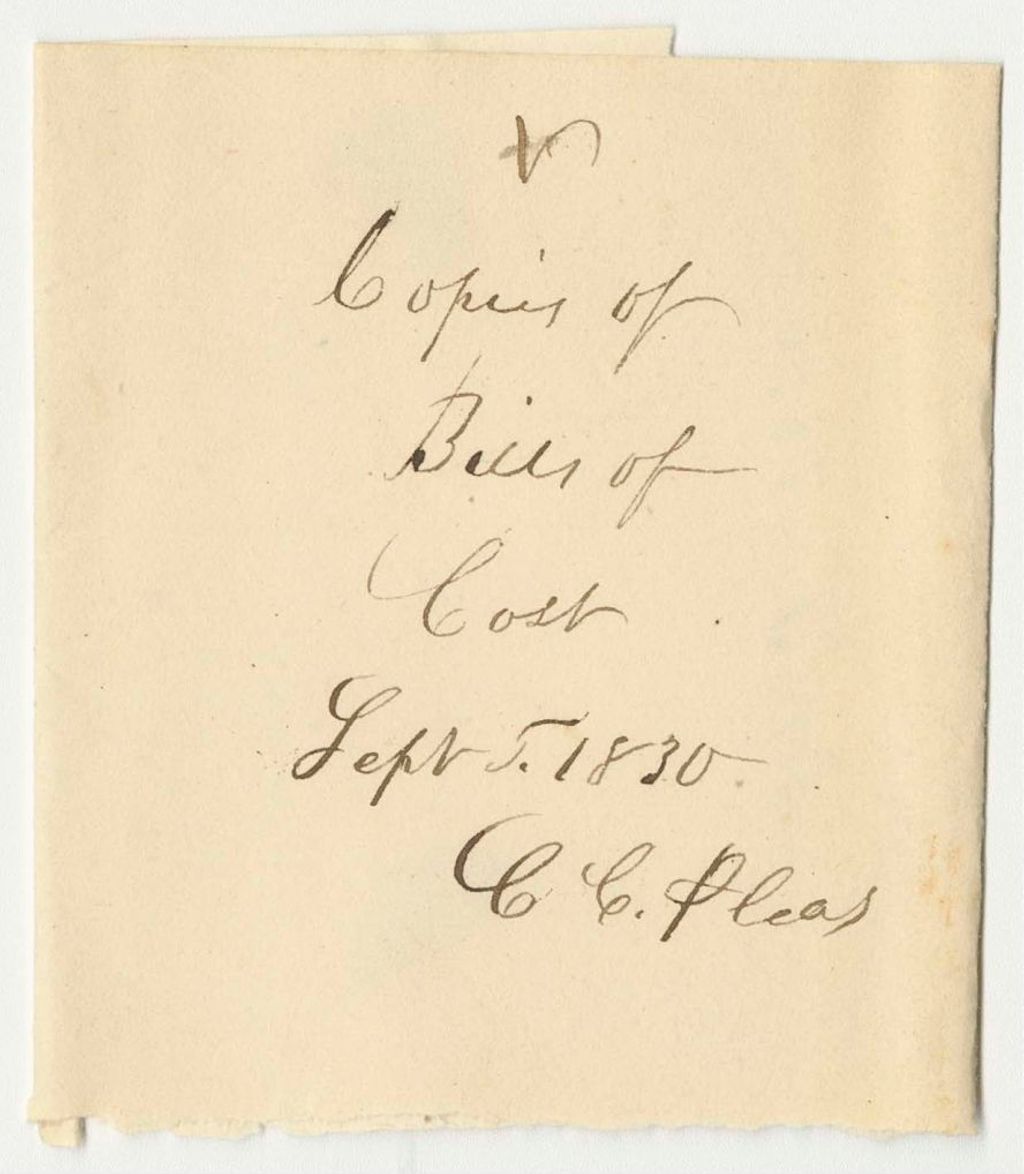 Copies of
Bills of
Cost
Sept T. 1830
C C. Pleas